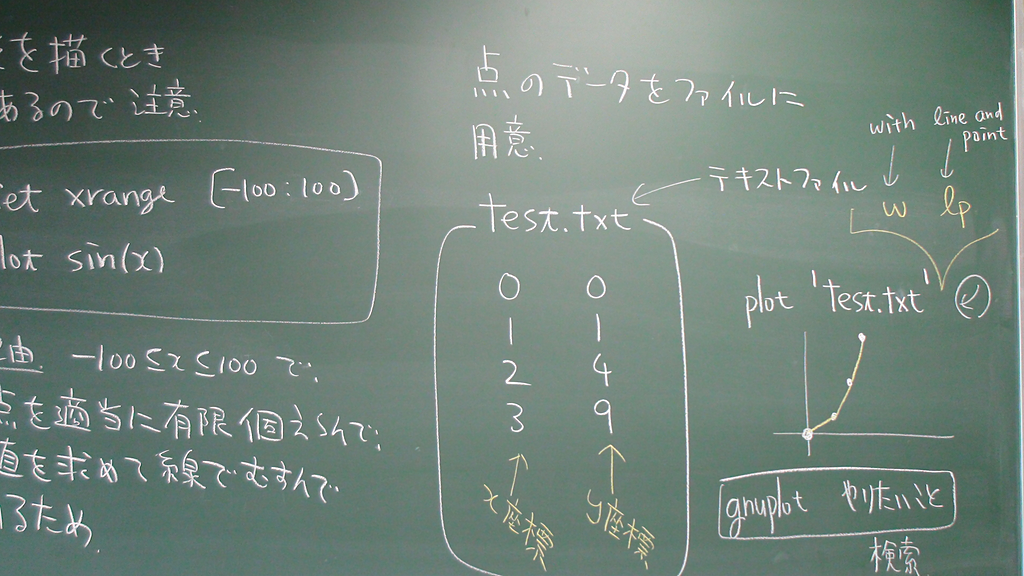 を描くとき
あるので注意.
et xrange [-100:100]
lot sin(x)
由. -100≦x≦100で,
点を適当に有限個えらんで,
直を求めて線でむすんで
るため.
点のデータをファイルに
用意.
テキストファイル
test.txt
0 0
1 1
2 4
3 9
x座標 y座標
with line and point
w lp
plot 'test.txt'
gnuplot やりたいこと
検索